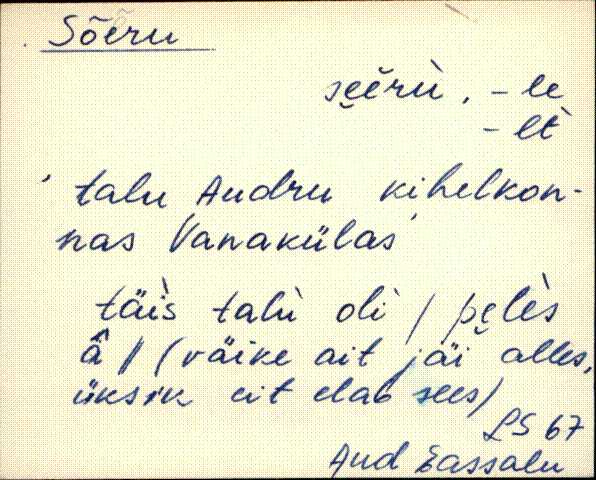 Sõeru
sẹẹ̆rù, - le
- lt
' talu Audru kihelkon-
nas Vanakülas '
täìs talù olì / pẹlès
â // (väike ait jäi alles,
üksik eit elab sees)
LS 67
Aud Eassalu